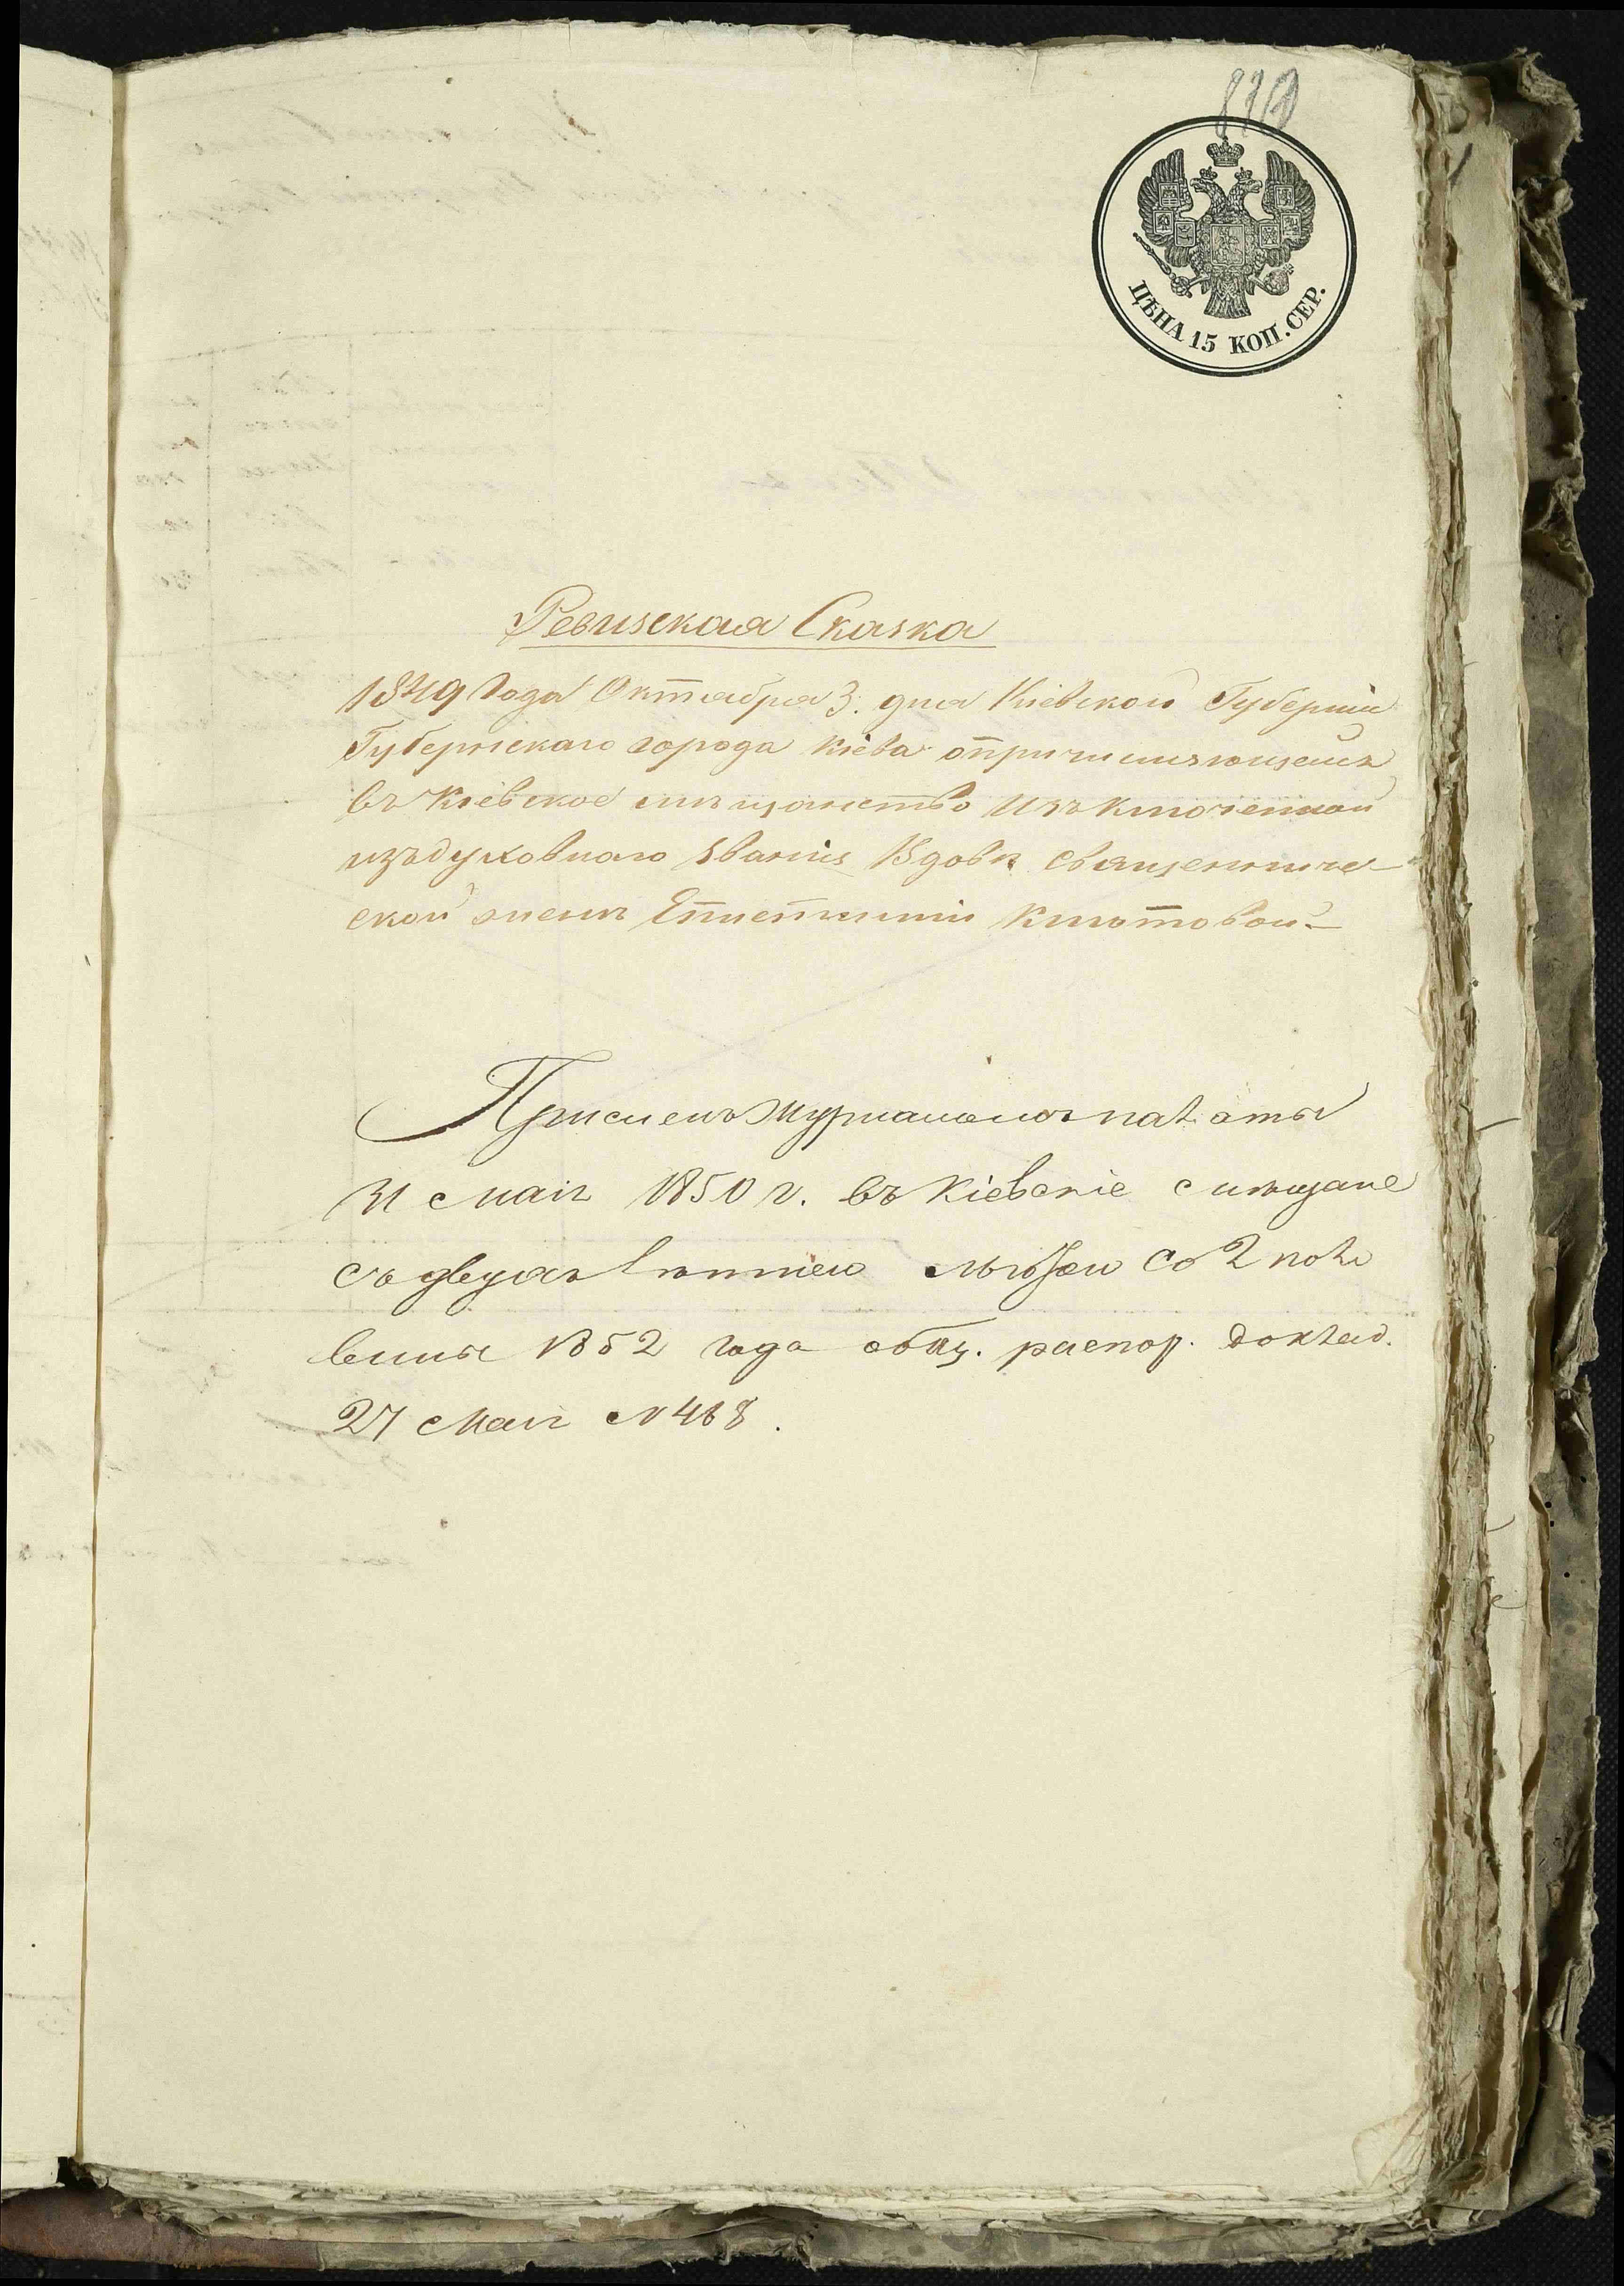 ЦѢНА 15 КОП. СЕР.
Ревизская Сказка
1849 Года Октября 3. дня Кіевской Губерніи
Губернскаго города Кіева опричисляющейся
въ Кіевское мѣщанство Изъключенной
изъ духовнаго званія Вдовѣ священниче-
ской жены
Причислена Журналомъ палаты
31 Мая 1850 г. въ Кіевскіе Мѣщане
съ двухъ лѣтнею льготою со 2 поло
вины 1852 года общ. распор. доклад.
27 Мая №